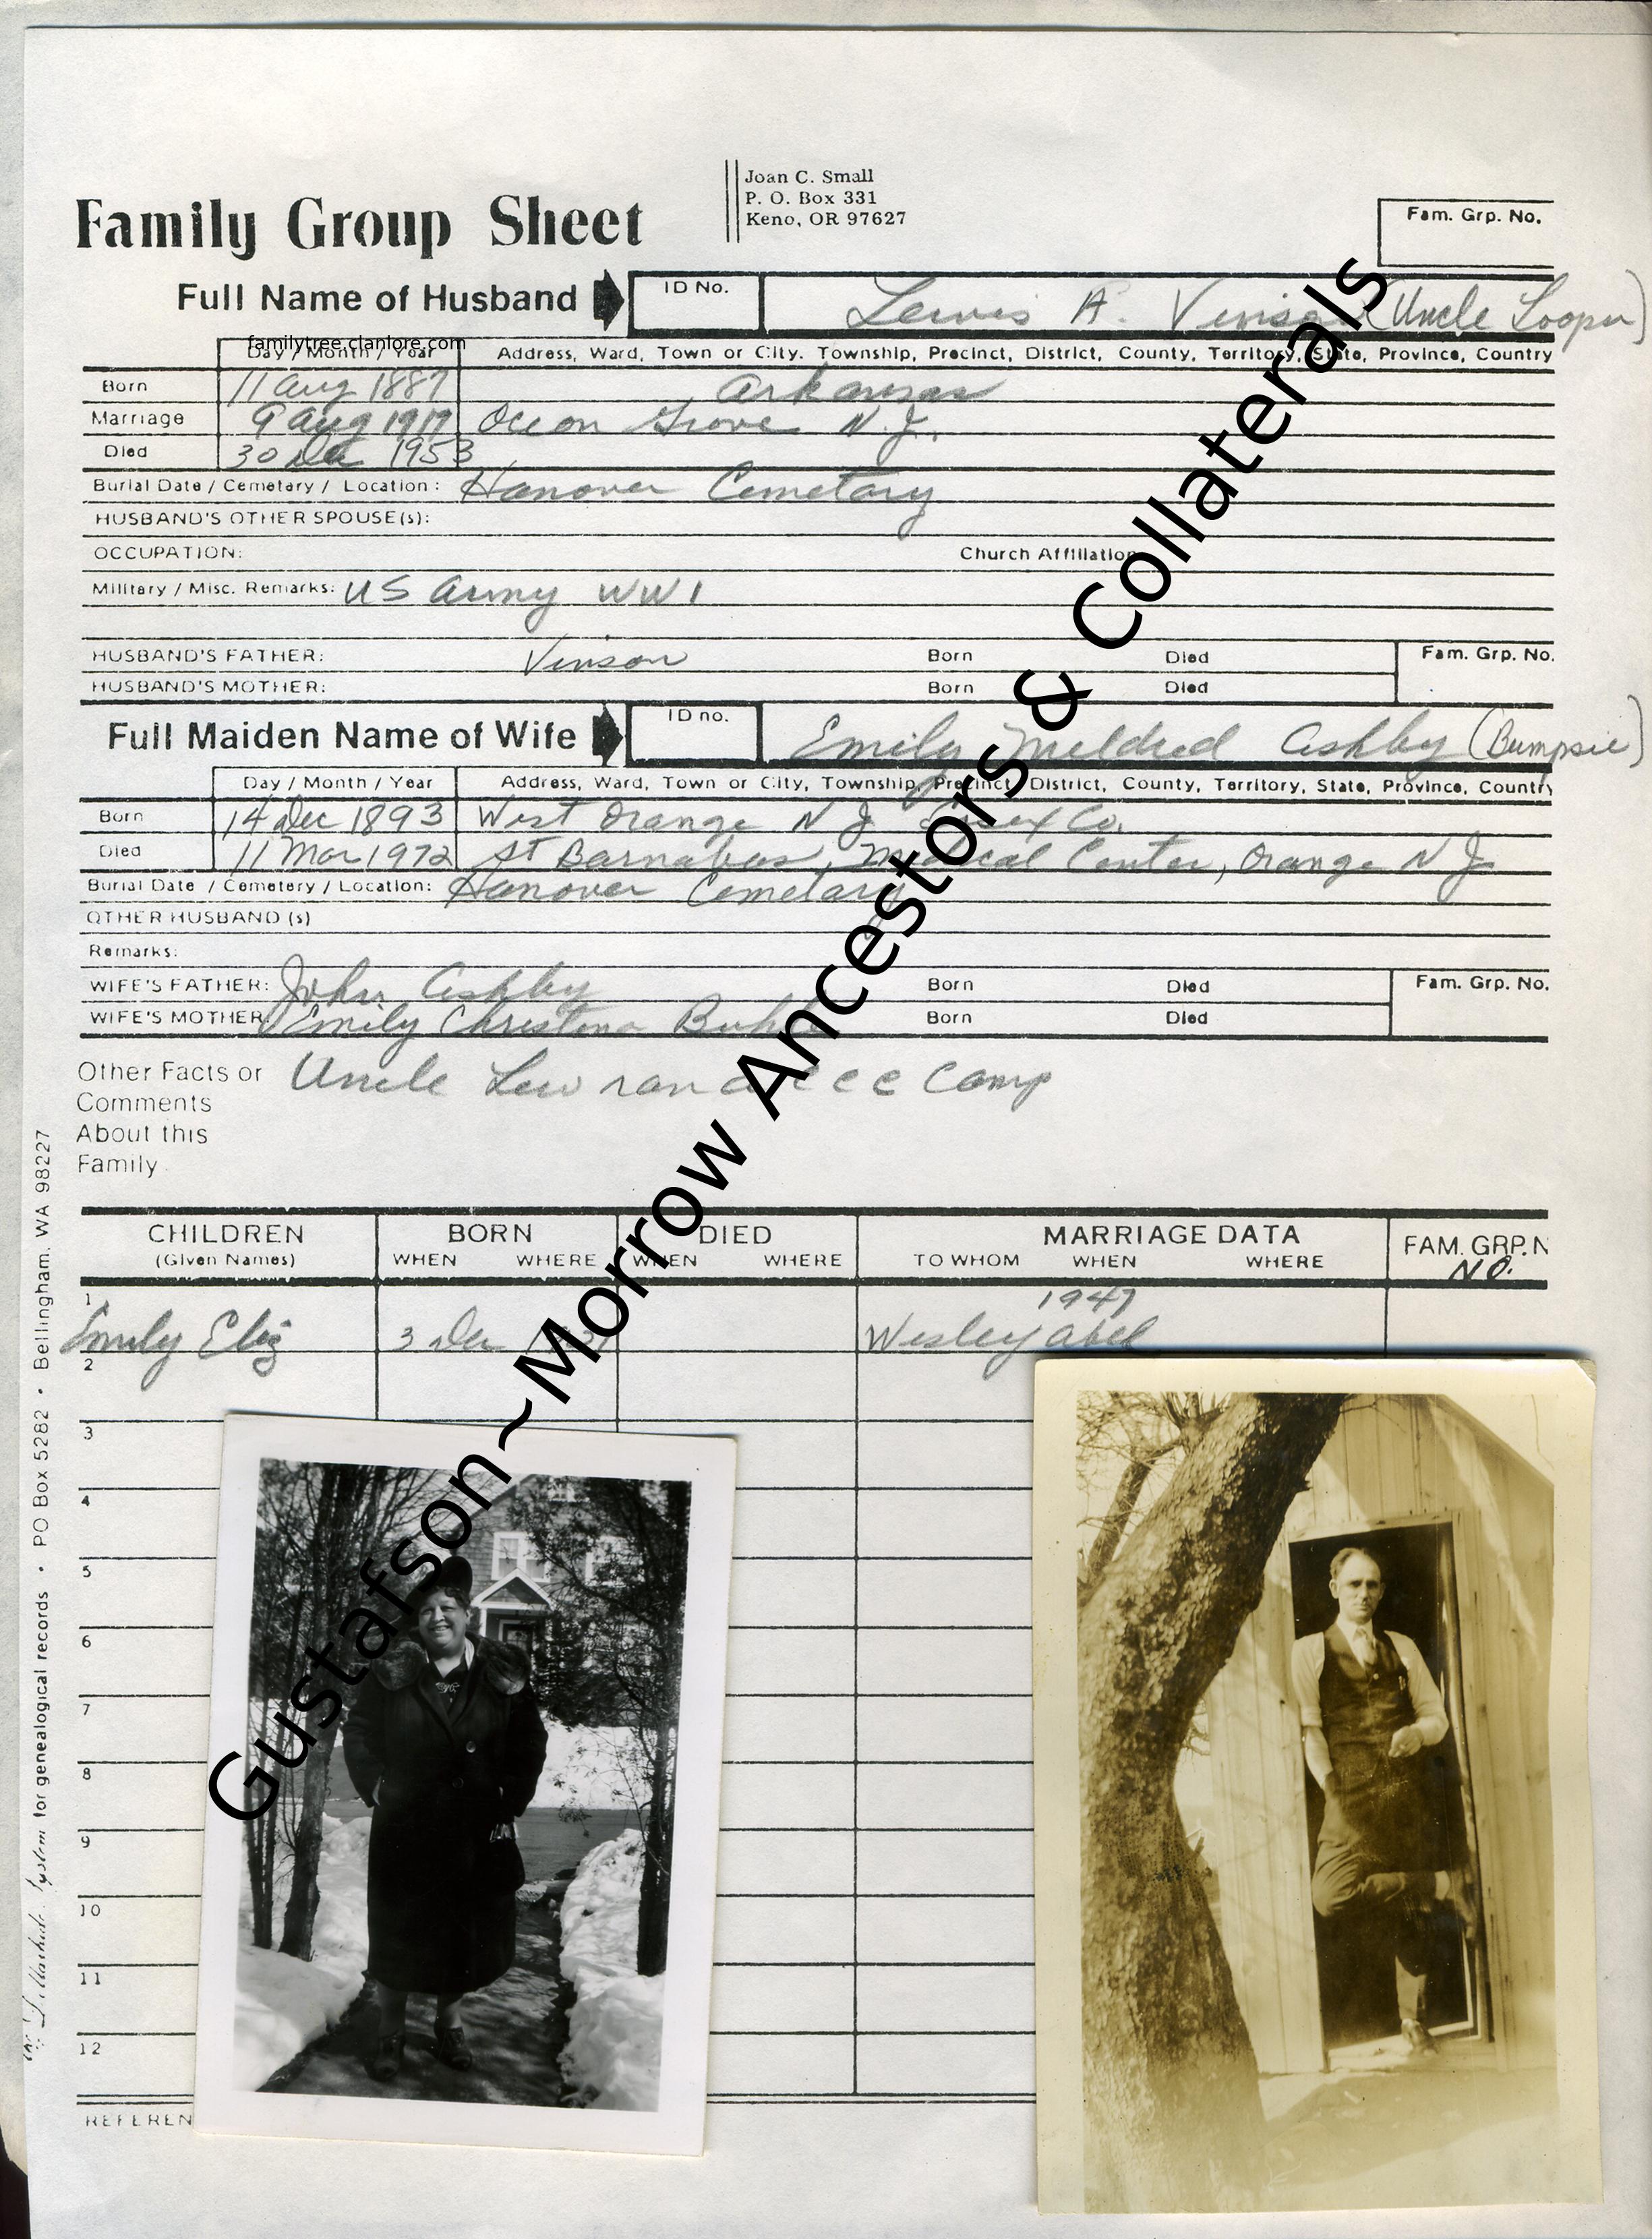 Joan C. Small
P. O. Box 331
Keno, OR 97627
Family Group Sheet
Fam. Grp. No.
Full Name of Husband
ID No.
Lewis A. Vinson (Uncle Looper)
familytree.clanlore.com
Day / Month / Year Address, Ward, Town or City. Township, Precinct, District, County, Territory, State, Province, Country
Born 11 Aug 1887 Arkansas
Marriage 9 Aug 1917 Ocean Grove N.J.
Died 30 Dec 1953
Burial Date / Cemetery / Location: Hanover Cemetary
HUSBAND'S OTHER SPOUSE(s):
OCCUPATION: Church Affiliation
Military / Misc. Remarks: US Army WW1
HUSBAND'S FATHER: Vinson Born Died Fam. Grp. No.
HUSBAND'S MOTHER: Born Died
Full Maiden Name of Wife
ID no.
Emily Mildred Ashby (Bumpsie)
Day / Month / Year Address, Ward, Town or City, Township, Precinct, District, County, Territory, State, Province, Country
Born 14 Dec 1893 West Orange N J Essex Co.
Died 11 Mar 1972 St Barnabas, Medical Center, Orange N J
Burial Date / Cemetery / Location: Hanover Cemetary
OTHER HUSBAND (s)
Remarks:
WIFE'S FATHER: John Ashby Born Died Fam. Grp. No.
WIFE'S MOTHER: Emily Christina Born Died
Other Facts or Uncle Lew ran a CCC Camp
Comments
About this
Family
CHILDREN BORN DIED MARRIAGE DATA FAM. GRP. N
(Given Names) WHEN WHERE WHEN WHERE TO WHOM WHEN WHERE NO.
1 1947
Emily Eliz 3 Dec Wesley Abel
2
3
4
5
6
7
8
9
10
11
12
REFEREN
System for genealogical records • PO Box 5282 • Bellingham, WA 98227
Gustafson~Morrow Ancestors & Collaterals